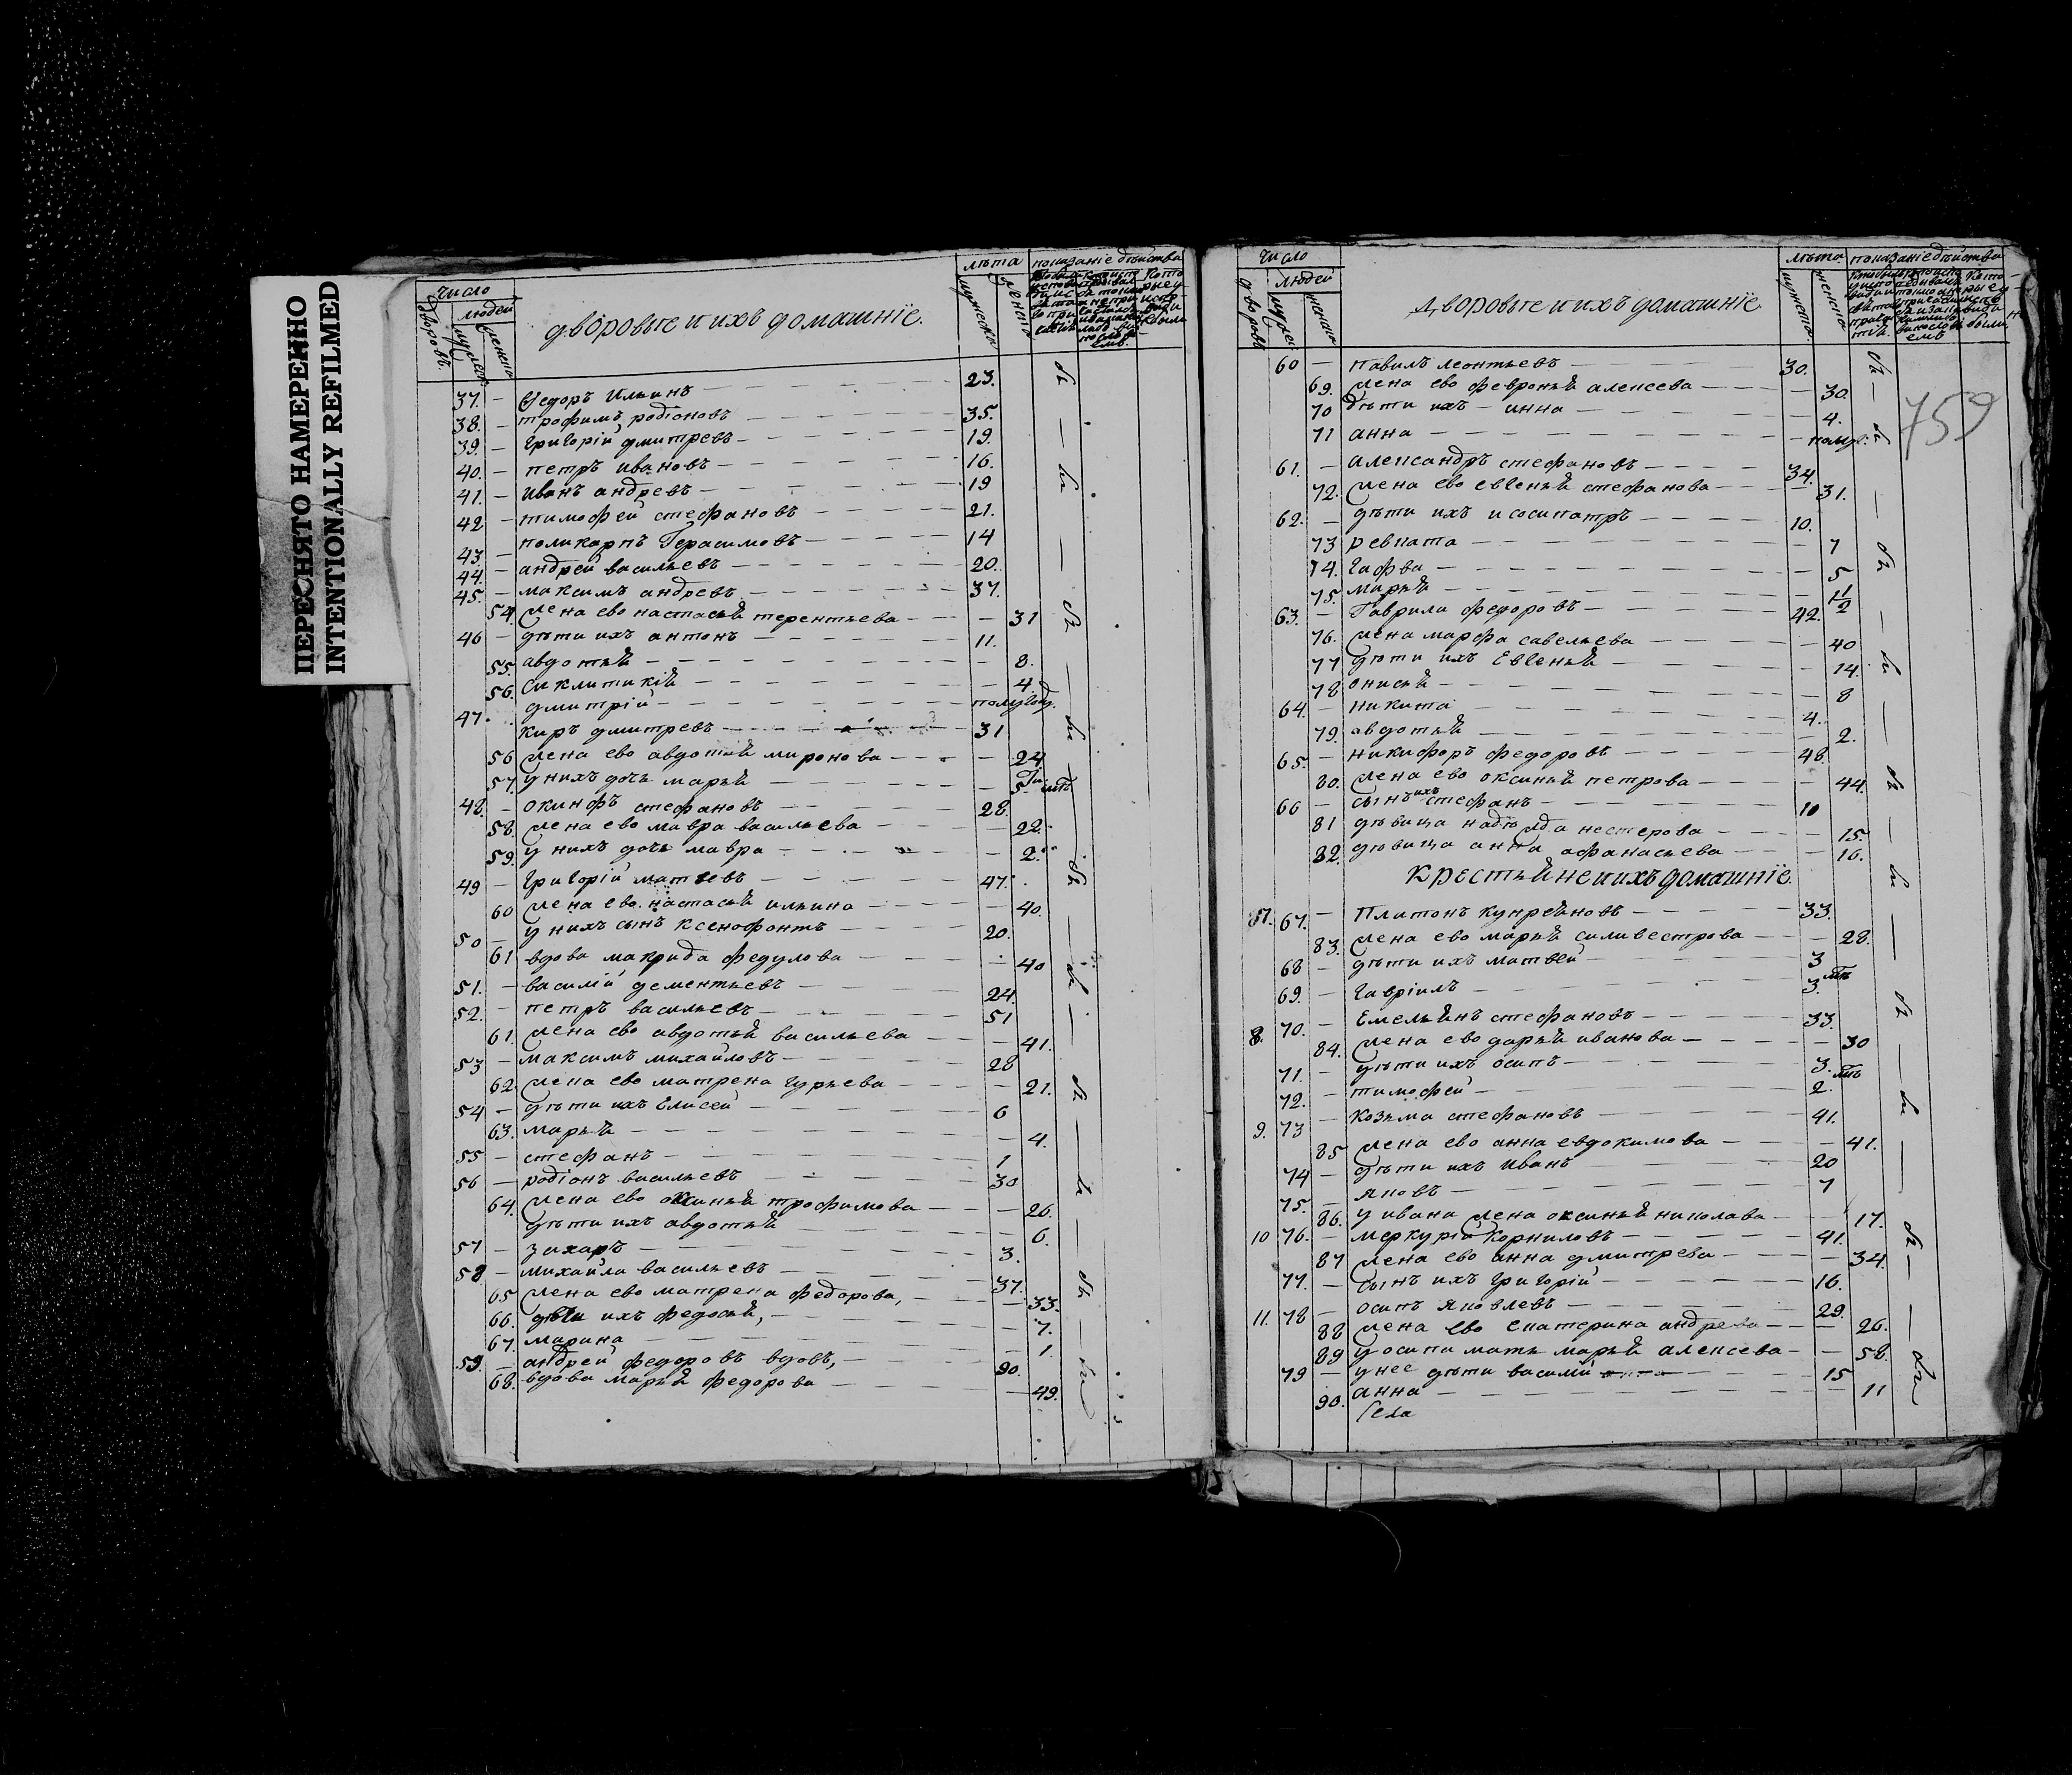 ПЕРЕСНЯТО НАМЕРЕННО
INTENTIONALLY REFILMED
Число
людей
дворовъ
мужеск.
женска
дворовые и ихъ домашнїе.
лѣта
мужеска
женска
показанїе дѣйства
37. — Ѳедоръ Ильинъ — 23.
38. — трофимъ родїоновъ — 35.
39. — григорїй дмитревъ — 19.
40. — петръ ивановъ — 16.
41. — иванъ андревъ — 19
42 — тимофей стефановъ — 21.
43 — поликарпъ Герасимовъ — 14
44. — андрей васильевъ — 20.
45. — максимъ андревъ — 37.
54. жена ево настасья терентьева — 31
46 — дѣти ихъ антонъ — 11.
55. авдотья — 8.
56. сиклитикїя — 4.
47. дмитрїй — полугоду.
киръ дмитревъ — 31
56 жена ево авдотья миронова — 24
57. у нихъ дочь марья — 5
48. — окинфъ стефановъ — 28.
58. жена ево мавра васильева — 22.
59. у нихъ дочь мавра — 2.
49 — григорїй матвевъ — 47.
60 жена ево настасья ильина — 40.
50 — у нихъ сынъ ксенофонтъ — 20.
61 вдова макрида федулова — 40
51. — василїй дементьевъ — 24.
52. — петръ васильевъ — 51
61. жена ево авдотья васильева — 41.
53 — максимъ михайловъ — 28
62. жена ево матрена гурьева — 21.
54 — дѣти ихъ Елисей — 6
63. марья — 4.
55 — стефанъ — 1
56 — родїонъ васильевъ — 30
64. жена ево оксинья трофимова — 26.
дѣти ихъ авдотья — 6.
57 — захаръ — 3.
58 — михайла васильевъ — 37.
65 жена ево матрена федорова, — 33.
66. дѣти ихъ федосья, — 7.
67. марина — 1.
59. — андрей федоровъ вдовъ, — 90.
68. вдова марья федорова — 49.
Число
людей
дворовъ
мужес
женска
дворовые и ихъ домашнїе
лѣта
мужеска.
женска.
показанїе дѣйства
759
60 — павилъ леонтьевъ — 30.
69. жена ево февронья алексева — 30.
70 дѣти ихъ — инна — 4.
71 анна — полуг.
61. — александръ стефановъ — 34.
72. жена ево евгенья стефанова — 31.
62. — дѣти ихъ исосипатръ — 10.
73 ревката — 7
74. гафва — 5
75. марья — 1 1/2
63. — Гаврила федоровъ — 42.
76. жена марфа савельева — 40
77 дѣти ихъ Евгенья — 14.
78 онисья — 8
64. — никита — 4.
79. авдотья — 2.
65. — никифоръ федоровъ — 48.
80. жена ево оксинья петрова — 44.
66 — сынъ ихъ стефанъ — 10
81 дѣвица надежда нестерова — 15.
82. дѣвица анна афанасьева — 16.
Крестьяне и ихъ домашнїе.
67. — Платонъ купреяновъ — 33.
83. жена ево марья силивестрова — 28.
68 — дѣти ихъ матвей — 3
69. — гаврїилъ — 3.
8. 70. — Емельянъ стефановъ — 33.
84. жена ево дарья иванова — 30
71. — дѣти ихъ осипъ — 3.
72. — тимофей — 2.
9. 73 — козьма стефановъ — 41.
85 жена ево анна евдокимова — 41.
74 — дѣти ихъ Иванъ — 20
75. — яковъ — 7
86. у ивана жена оксинья николава — 17.
10 76. — меркурїй корниловъ — 41.
87 жена ево анна дмитрева — 34.
77. — сынъ ихъ григорїй — 16.
11. 78 — осипъ яковлевъ — 29.
88 жена ево екатерина андрева — 26.
89 у осипа мать марья алексева — 58.
79 — у нее дѣти василїй — 15
90. анна — 11
села